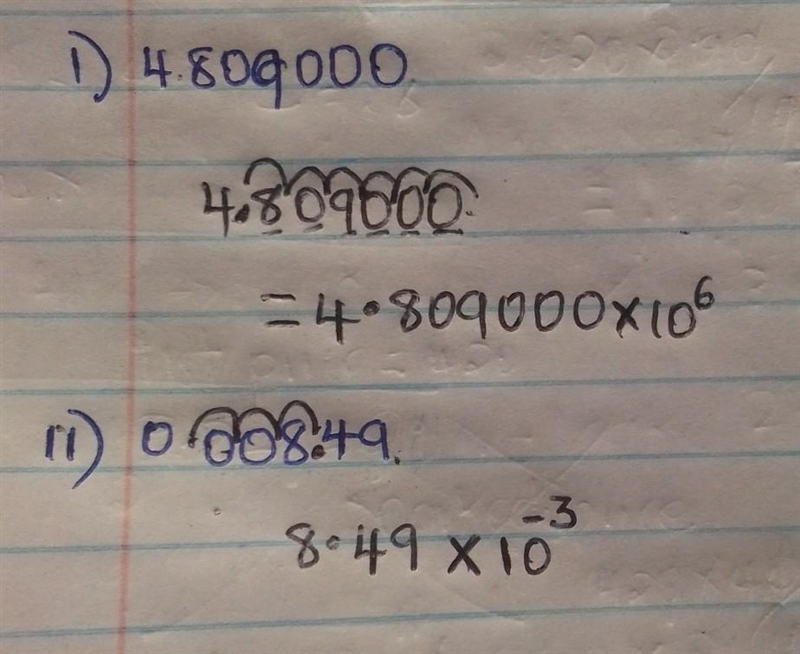 i) 4.809000
4.809000.
= 4.809000 × 10⁶
ii) 0.008.49.
8.49 × 10⁻³